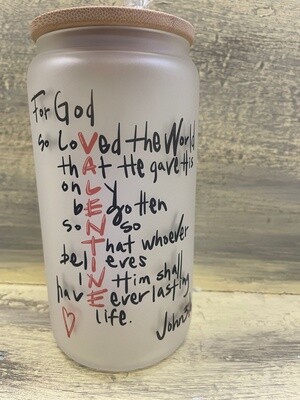 For God
so LoVed the World
thAt He gave His
onLy
bEgotten
soN so
That whoever
belIeves
iN Him shall
havE everlasting
life.
John